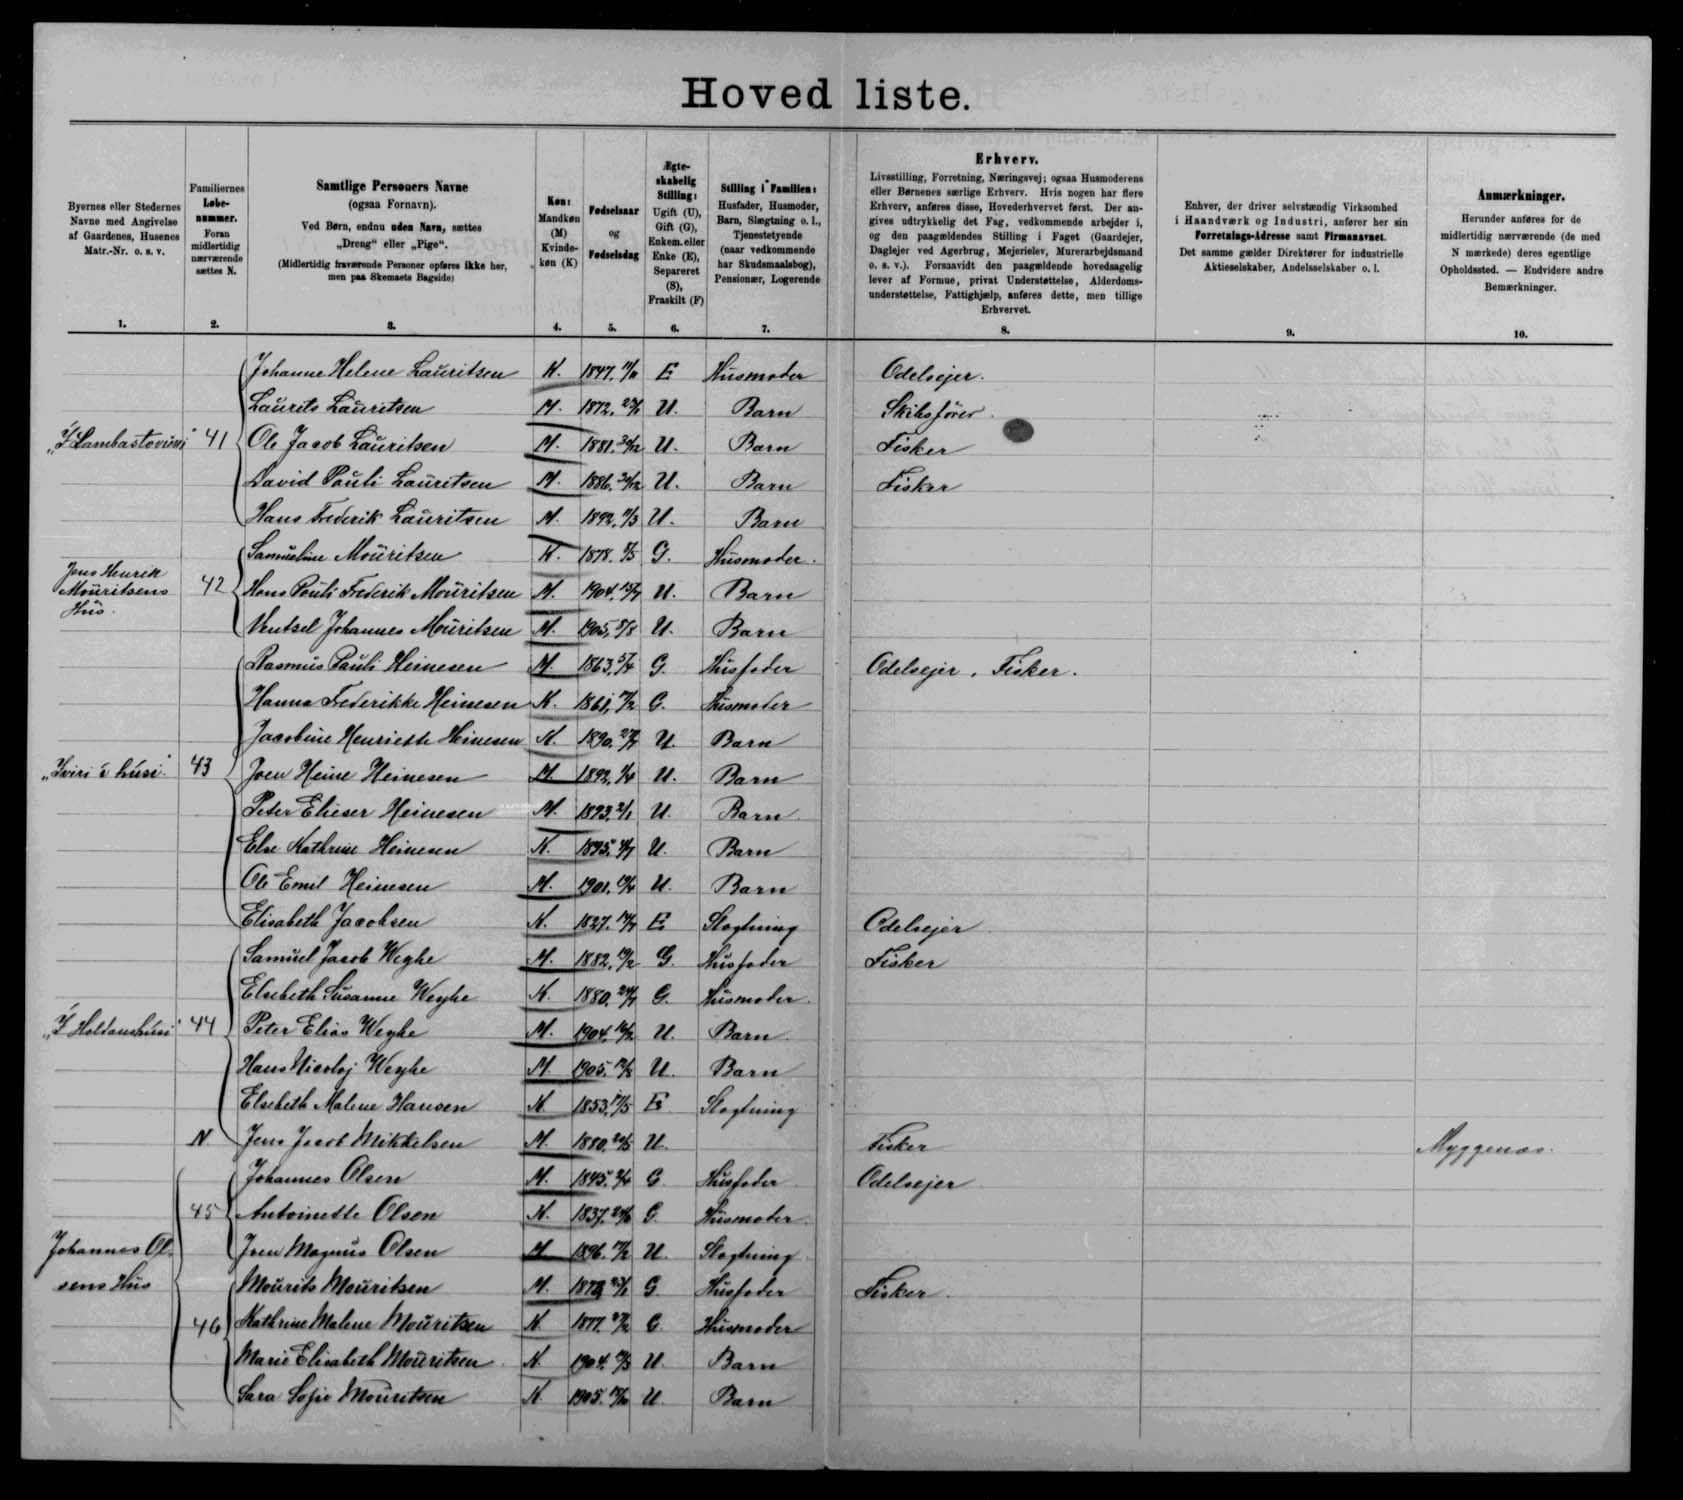 Hoved liste.
Byernes eller Stedernes
Navne med Angivelse
af Gaardenes, Husenes
Matr.-Nr. o. s. v.
1.
Familiernes
Løbe-
nummer.
Foran
midlertidig
nærværende
sættes N.
2.
Samtlige Personers Navne
(ogsaa Fornavn).
Ved Børn, endnu uden Navn, sættes
„Dreng“ eller „Pige“.
(Midlertidig fraværende Personer opføres ikke her,
men paa Skemaets Bagside)
3.
Køn:
Mandkøn
(M)
Kvinde-
køn (K)
4.
Fødselsaar
og
Fødselsdag
5.
Ægte-
skabelig
Stilling:
Ugift (U),
Gift (G),
Enkem. eller
Enke (E),
Separeret
(S),
Fraskilt (F)
6.
Stilling i Familien:
Husfader, Husmoder,
Barn, Slægtning o. l.,
Tjenestetyende
(naar vedkommende
har Skudsmaalsbog),
Pensionær, Logerende
7.
Erhverv.
Livsstilling, Forretning, Næringsvej; ogsaa Husmoderens
eller Børnenes særlige Erhverv. Hvis nogen har flere
Erhverv, anføres disse, Hovederhvervet først. Der an-
gives udtrykkelig det Fag, vedkommende arbejder i,
og den paagældendes Stilling i Faget (Gaardejer,
Daglejer ved Agerbrug, Mejerielev, Murerarbejdsmand
o. s. v.). Forsaavidt den paagældende hovedsagelig
lever af Formue, privat Understøttelse, Alderdoms-
understøttelse, Fattighjælp, anføres dette, men tillige
Erhvervet.
8.
Enhver, der driver selvstændig Virksomhed
i Haandværk og Industri, anfører her sin
Forretnings-Adresse samt Firmanavnet.
Det samme gælder Direktører for industrielle
Aktieselskaber, Andelsselskaber o. l.
9.
Anmærkninger.
Herunder anføres for de
midlertidig nærværende (de med
N mærkede) deres egentlige
Opholdssted. — Endvidere andre
Bemærkninger.
10.
Johanne Helene Lauritsen K. 1847. E Husmoder Odelsejer.
Laurits Lauritsen M. 1872. U. Barn Skibsfører.
41 Ole Jacob Lauritsen M. 1881. U. Barn Fisker
David Pauli Lauritsen M. 1886. U. Barn Fisker
Hans Frederik Lauritsen M. 1892. U. Barn
Samueline Mouritsen K. 1878. G. Husmoder.
Jens Henrik
Mouritsens
Hus.
42 Hans Pauli Frederik Mouritsen M. 1904. U. Barn
Ventsel Johannes Mouritsen M. 1905. U. Barn
Rasmus Pauli Heinesen M. 1863. G. Husfader Odelsejer. Fisker.
Hanna Frederikke Heinesen K. 1861. G. Husmoder
Jacobine Henriette Heinesen K. 1890. U. Barn
„Yviri í húsi“ 43 Joen Heine Heinesen M. 1892. U. Barn
Peter Elieser Heinesen M. 1893. U. Barn
Else Kathrine Heinesen K. 1895. U. Barn
Ole Emil Heinesen M. 1901. U. Barn
Elisabeth Jacobsen K. 1827. E Slægtning Odelsejer
Samuel Jacob Weyhe M. 1882. G. Husfader Fisker
Elsebeth Susanne Weyhe K. 1880. G. Husmoder.
44 Peter Elias Weyhe M. 1904. U. Barn.
Hans Nicolaj Weyhe M. 1905. U. Barn
Elsebeth Malene Hansen K. 1853. E Slægtning
N Jens Jacob Mikkelsen M. 1880. U. Fisker Myggenæs.
Johannes Olsen M. 1845. G. Husfader Odelsejer
45 Antoinette Olsen K. 1837. G. Husmoder.
Johannes Ol-
sens Hus
Joen Magnus Olsen M 1896. U. Slægtning
Mourits Mouritsen M. G. Husfader Fisker.
46 Kathrine Malene Mouritsen K. 1877. G. Husmoder
Marie Elisabeth Mouritsen K. 1904. U. Barn
Sara Sofie Mouritsen K. 1905. U. Barn